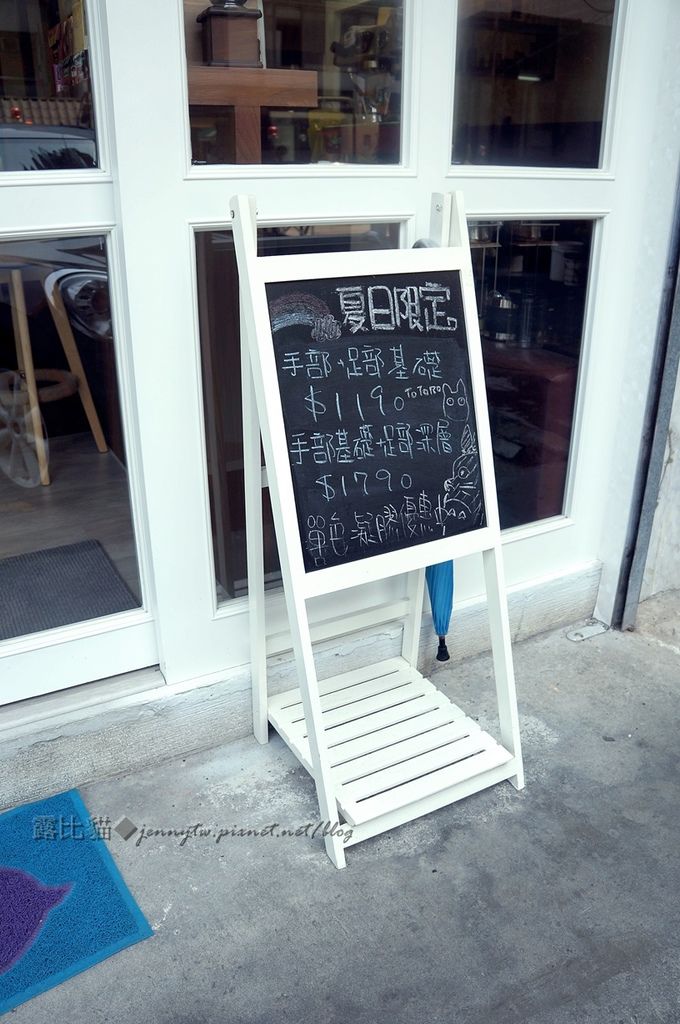 夏日限定
手部、足部基礎
$1190
ToToRo
手部基礎、足部深層
$1790
單色凝膠優惠中
露比貓◆jennytw.pixnet.net/blog